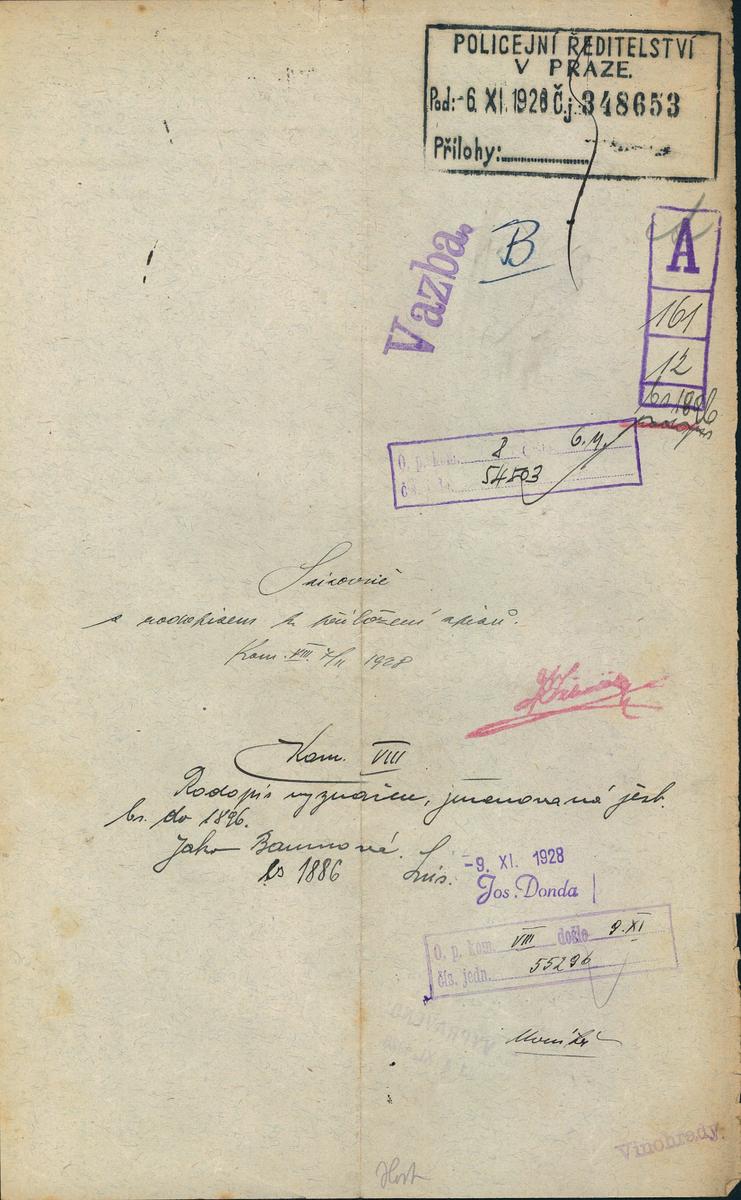 POLICEJNÍ ŘEDITELSTVÍ
V PRAZE.
Pod: -6. XI. 1928 Č.j. 348653
Přílohy:
Vazba.
B
A
161
12
O. p. kom. 8
54803
s rodopisem k přiložení spisů.
Kom. VIII 7/11 1928
Kom. VIII
Rodopis vyznačen, jmenovaná jest
bs. do 1896.
Jako Baumová.
bs 1886
-9. XI. 1928
Jos. Donda
O. p. kom. VIII došlo 9. XI
čís. jedn. 55296
Vinohrady.